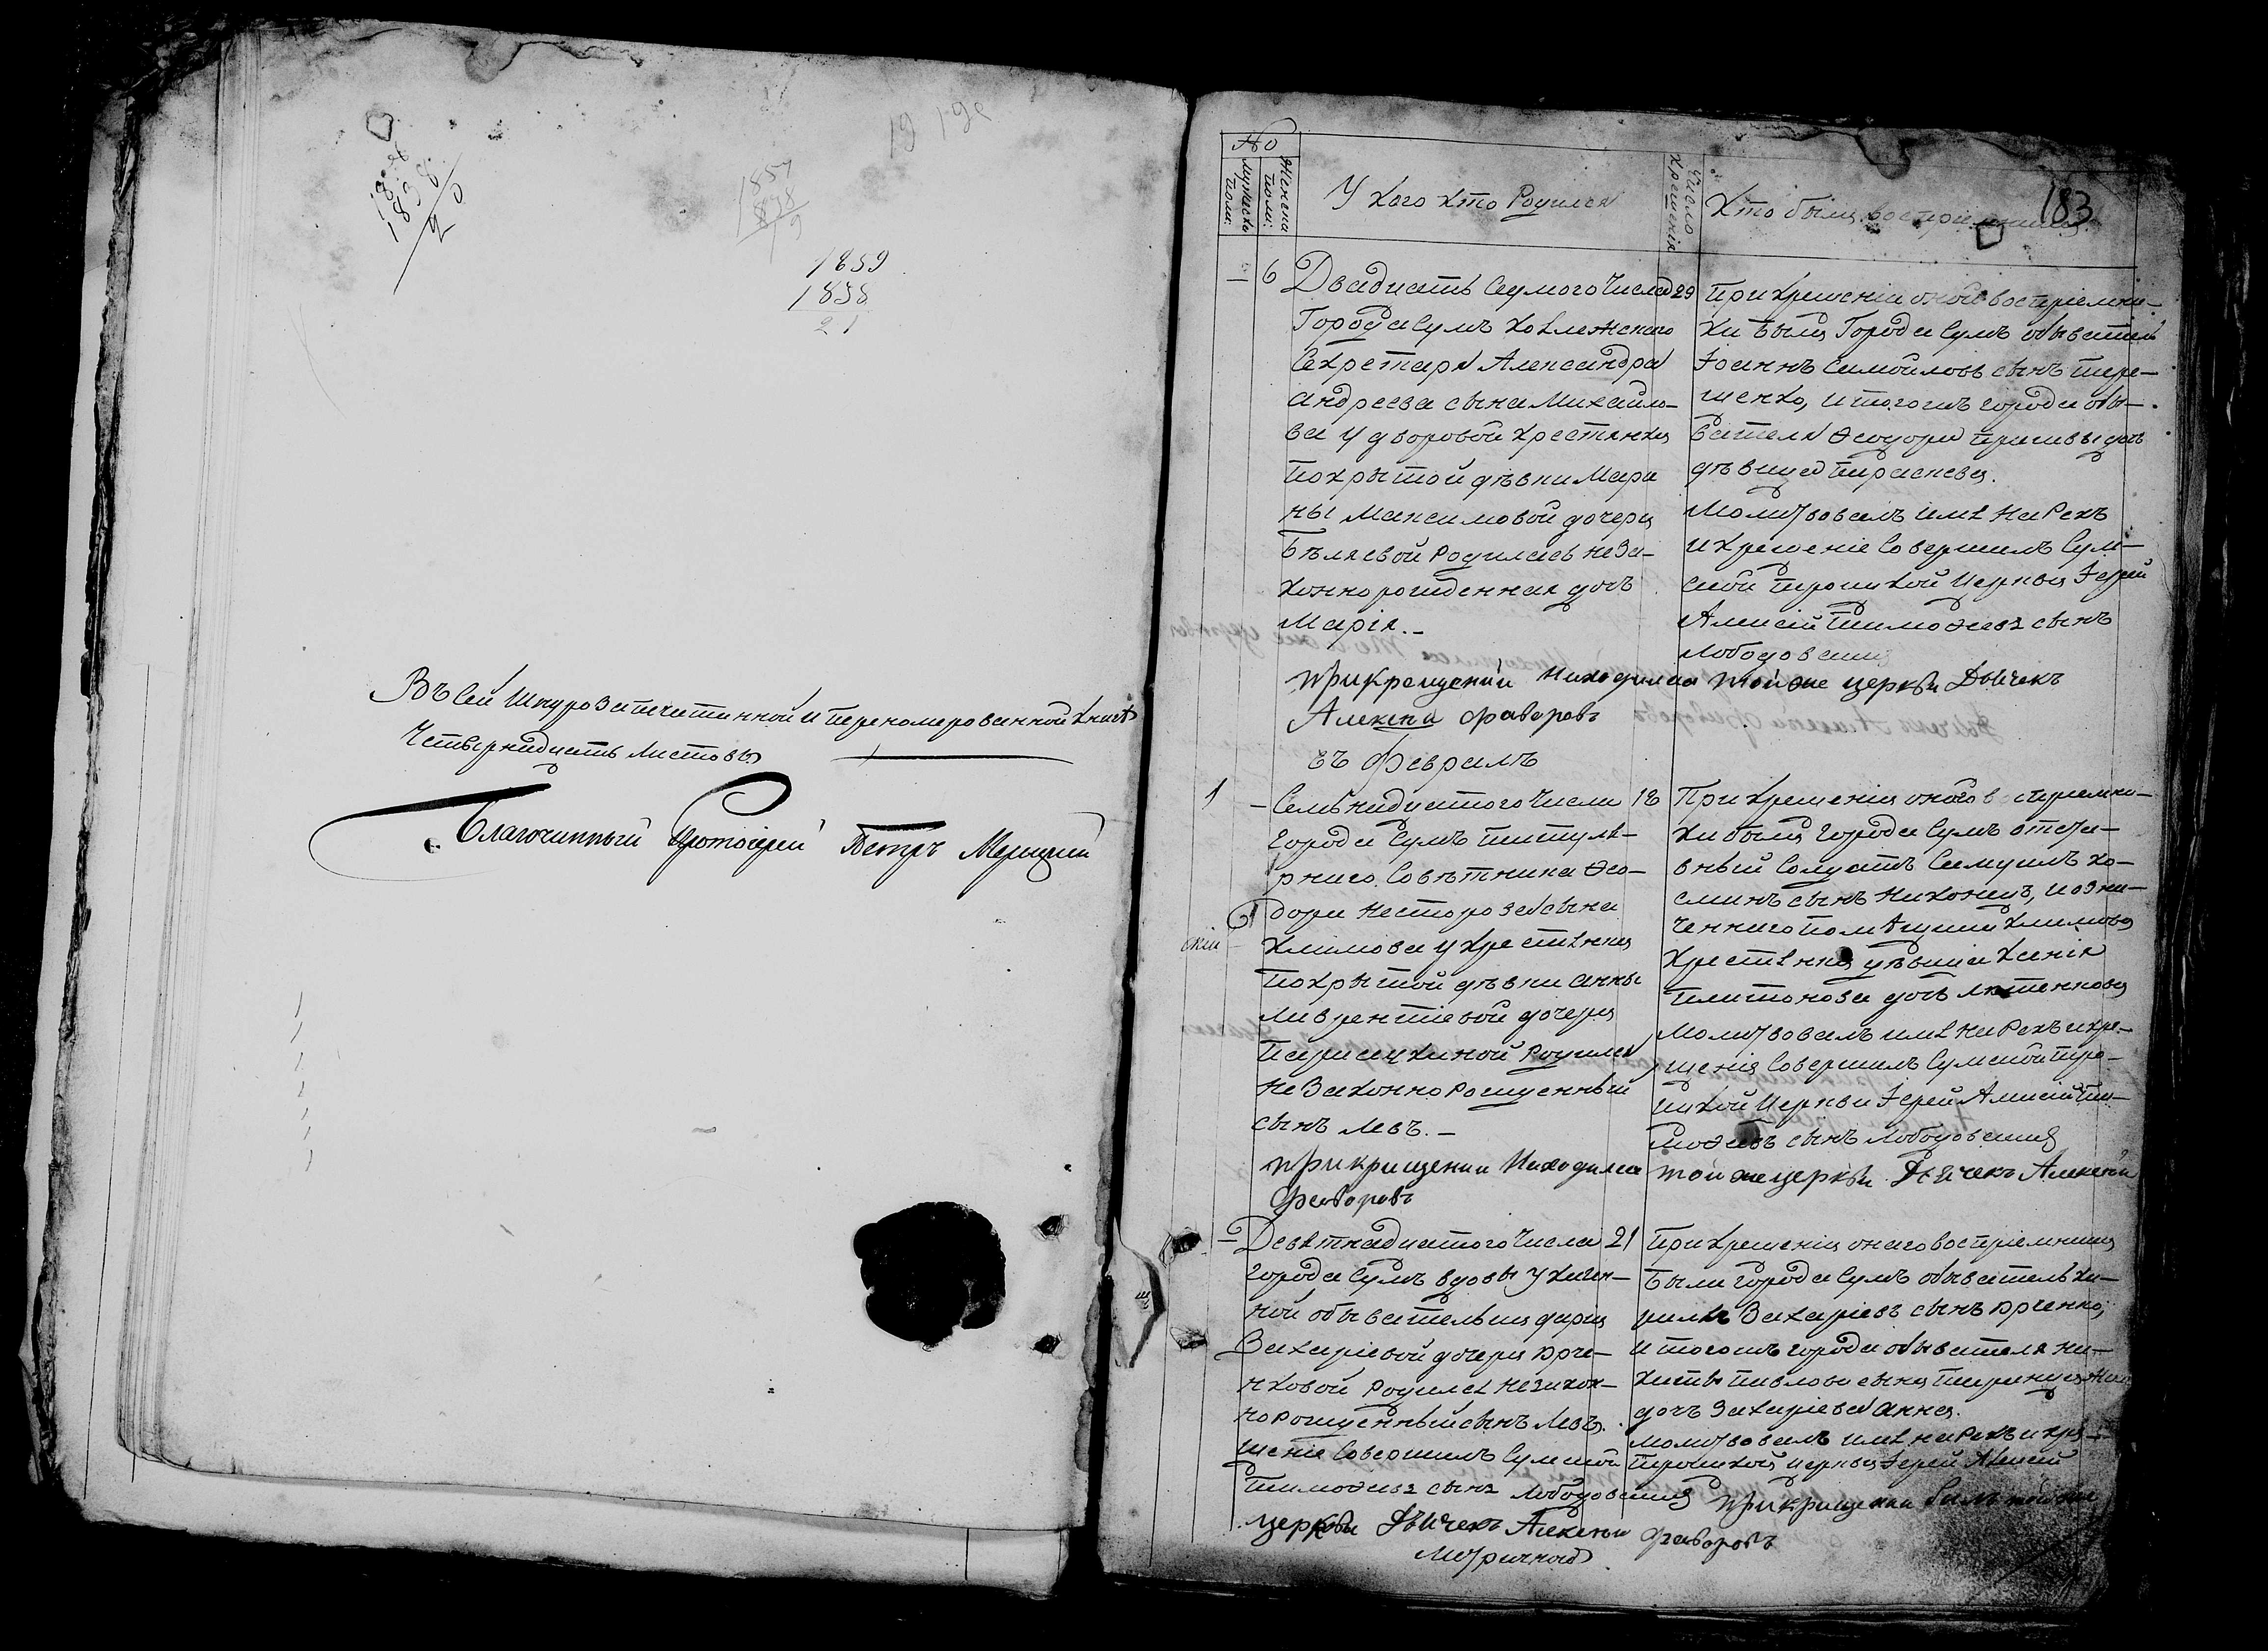 1838
20
1857
1838
19
1859
1838
21
Въ сей шнурозапечатанной и перномерованной книгѣ
Четырнадцать листовъ
Благочинный Протоіерей Петръ
183
№
Мужеска полу:
Женска полу:
У кого кто родился
Число крещенія
Кто были воспріемники
— 6 Двадцать седмого числа 29
Города Сумъ коллежского
Секретаря Александра
Андреева сына Михайло-
ва у дворовой крестянки
покрытой дѣвки Мари
ны Максимовой дочери
Бѣляевой родилась неза-
коннорожденная дочь
Марія.—
При крещеніи оной воспріемни-
ки были города Сумъ обыватель
Іоаннъ Самойловъ сынъ Тере-
щенко, и тогожъ города обы-
вателя Ѳеодора дочь
дѣвица Параскева.
Молитвовалъ имя нарекъ
и крещеніе совершилъ Сум-
ской Троицкой церкви Іерей
Алексій Тимоѳеевъ сынъ
Лободовскій
при крещении находился той же церкви Дьячекъ
Алексей Фаворовъ
въ Февралѣ
1 — Семьнадцатого числа 18
города Сумъ титуля-
рнаго совѣтника Ѳео-
дора Несторова сына
Климова у крестянки
покрытой дѣвки Анны
Лаврентіевой дочери
родился
незаконнорожденный
сынъ Левъ.—
При крещеніи оного воспріемни-
ки были города Сумъ отста-
вный солдатъ Самуилъ Ко-
сминъ сынъ Никоновъ, и озна-
ченнаго помѣщика Климова
крестянка дѣвица Ксенія
Платонова дочь
Молитвовалъ имя нарекъ и кре-
щеніе совершилъ Сумской Тро-
ицкой церкви Іерей Алексій Ти-
моѳеевъ сынъ Лободовскій
при крищении находился той же церкви Дьячекъ Алексей
Фаворовъ
— Девятнадцатого числа 21
города Сумъ вдовы
ной обывательки Дарьи
Захаріевой дочери Юрче-
нковой родился незакон-
норожденный сынъ Левъ.
При крещеніи онаго воспріемники
были города Сумъ обыватель Ки-
рилъ Захаріевъ сынъ Юрченко,
и тогожъ города обывателя Ни-
киты Павлова сына
дочь Захаріева Анна.
Молитвовалъ имя нарекъ и кре-
щеніе совершилъ Сумской Троицкой церкви Іерей Алексій
Тимоѳеевъ сынъ Лободовскій при крищении былъ той же
церкви Дьячекъ Алексей Фаворовъ